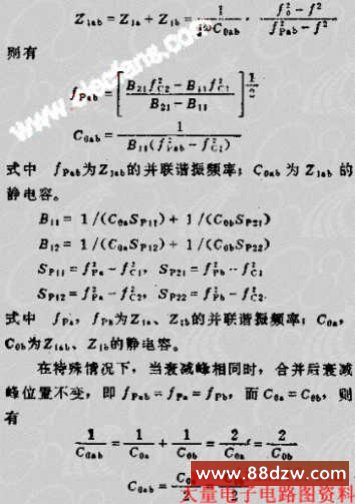 Z_{1ab} = Z_{1a} + Z_{1b} = \frac{1}{jωC_{0ab}} · \frac{f_0^2 - f^2}{f_{Pab}^2 - f^2}
则有
f_{Pab} = [\frac{B_{21}f_{C2}^2 - B_{11}f_{C1}^2}{B_{21} - B_{11}}]^{\frac{1}{2}}
C_{0ab} = \frac{1}{B_{11}(f_{Pab}^2 - f_{C1}^2)}
式中 f_{Pab}为Z_{1ab}的并联谐振频率；C_{0ab}为Z_{1ab}的
静电容。
B_{11} = 1/(C_{0a}S_{P11}) + 1/(C_{0b}S_{P21})
B_{12} = 1/(C_{0a}S_{P12}) + 1/(C_{0b}S_{P22})
S_{P11} = f_{Pa}^2 - f_{C1}^2, S_{P21} = f_{Pb}^2 - f_{C1}^2
S_{P12} = f_{Pa}^2 - f_{C2}^2, S_{P22} = f_{Pb}^2 - f_{C2}^2.
式中 f_{Pa}, f_{Pb}为Z_{1a}、Z_{1b}的并联谐振频率；C_{0a},
C_{0b}为Z_{1ab}、Z_{1b}的静电容。
在特殊情况下，当衰减峰相同时，合并后衰减
峰位置不变，即 f_{Pab} = f_{Pa} = f_{Pb}，而 C_{0a} = C_{0b}，则
有
\frac{1}{C_{0ab}} = \frac{1}{C_{0a}} + \frac{1}{C_{0b}} = \frac{2}{C_{0a}} = \frac{2}{C_{0b}}
www.88dzw.com
大量电子电路图资料